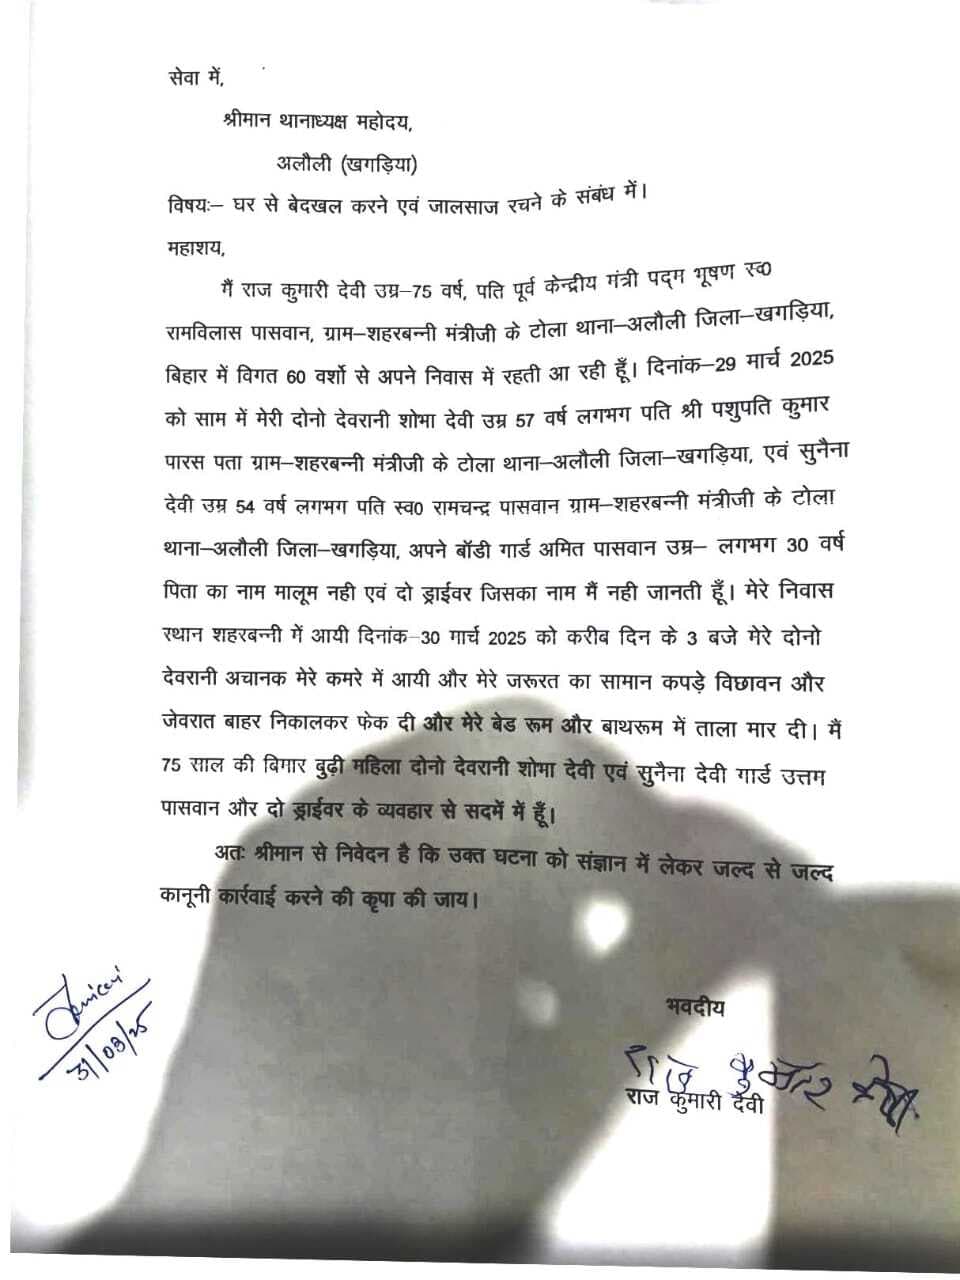 सेवा में,
श्रीमान थानाध्यक्ष महोदय,
अलौली (खगड़िया)
विषयः– घर से बेदखल करने एवं जालसाज रचने के संबंध में।
महाशय,
मैं राज कुमारी देवी उम्र–75 वर्ष, पति पूर्व केन्द्रीय मंत्री पद्म भूषण स्व0
रामविलास पासवान, ग्राम–शहरबन्नी मंत्रीजी के टोला थाना–अलौली जिला–खगड़िया,
बिहार में विगत 60 वर्शो से अपने निवास में रहती आ रही हूँ। दिनांक–29 मार्च 2025
को साम में मेरी दोनो देवरानी शोभा देवी उम्र 57 वर्ष लगभग पति श्री पशुपति कुमार
पारस पता ग्राम–शहरबन्नी मंत्रीजी के टोला थाना–अलौली जिला–खगड़िया, एवं सुनैना
देवी उम्र 54 वर्ष लगभग पति स्व0 रामचन्द्र पासवान ग्राम–शहरबन्नी मंत्रीजी के टोला
थाना–अलौली जिला–खगड़िया, अपने बॉडी गार्ड अमित पासवान उम्र– लगभग 30 वर्ष
पिता का नाम मालूम नही एवं दो ड्राईवर जिसका नाम मैं नही जानती हूँ। मेरे निवास
स्थान शहरबन्नी में आयी दिनांक–30 मार्च 2025 को करीब दिन के 3 बजे मेरे दोनो
देवरानी अचानक मेरे कमरे में आयी और मेरे जरूरत का सामान कपड़े विछावन और
जेवरात बाहर निकालकर फेक दी और मेरे बेड रूम और बाथरूम में ताला मार दी। मैं
75 साल की बिमार बुढ़ी महिला दोनो देवरानी शोभा देवी एवं सुनैना देवी गार्ड उत्तम
पासवान और दो ड्राईवर के व्यवहार से सदमें में हूँ।
अतः श्रीमान से निवेदन है कि उक्त घटना को संज्ञान में लेकर जल्द से जल्द
कानूनी कार्रवाई करने की कृपा की जाय।
31/03/25
भवदीय
राज कुमारी देवी
राज कुमारी देवी